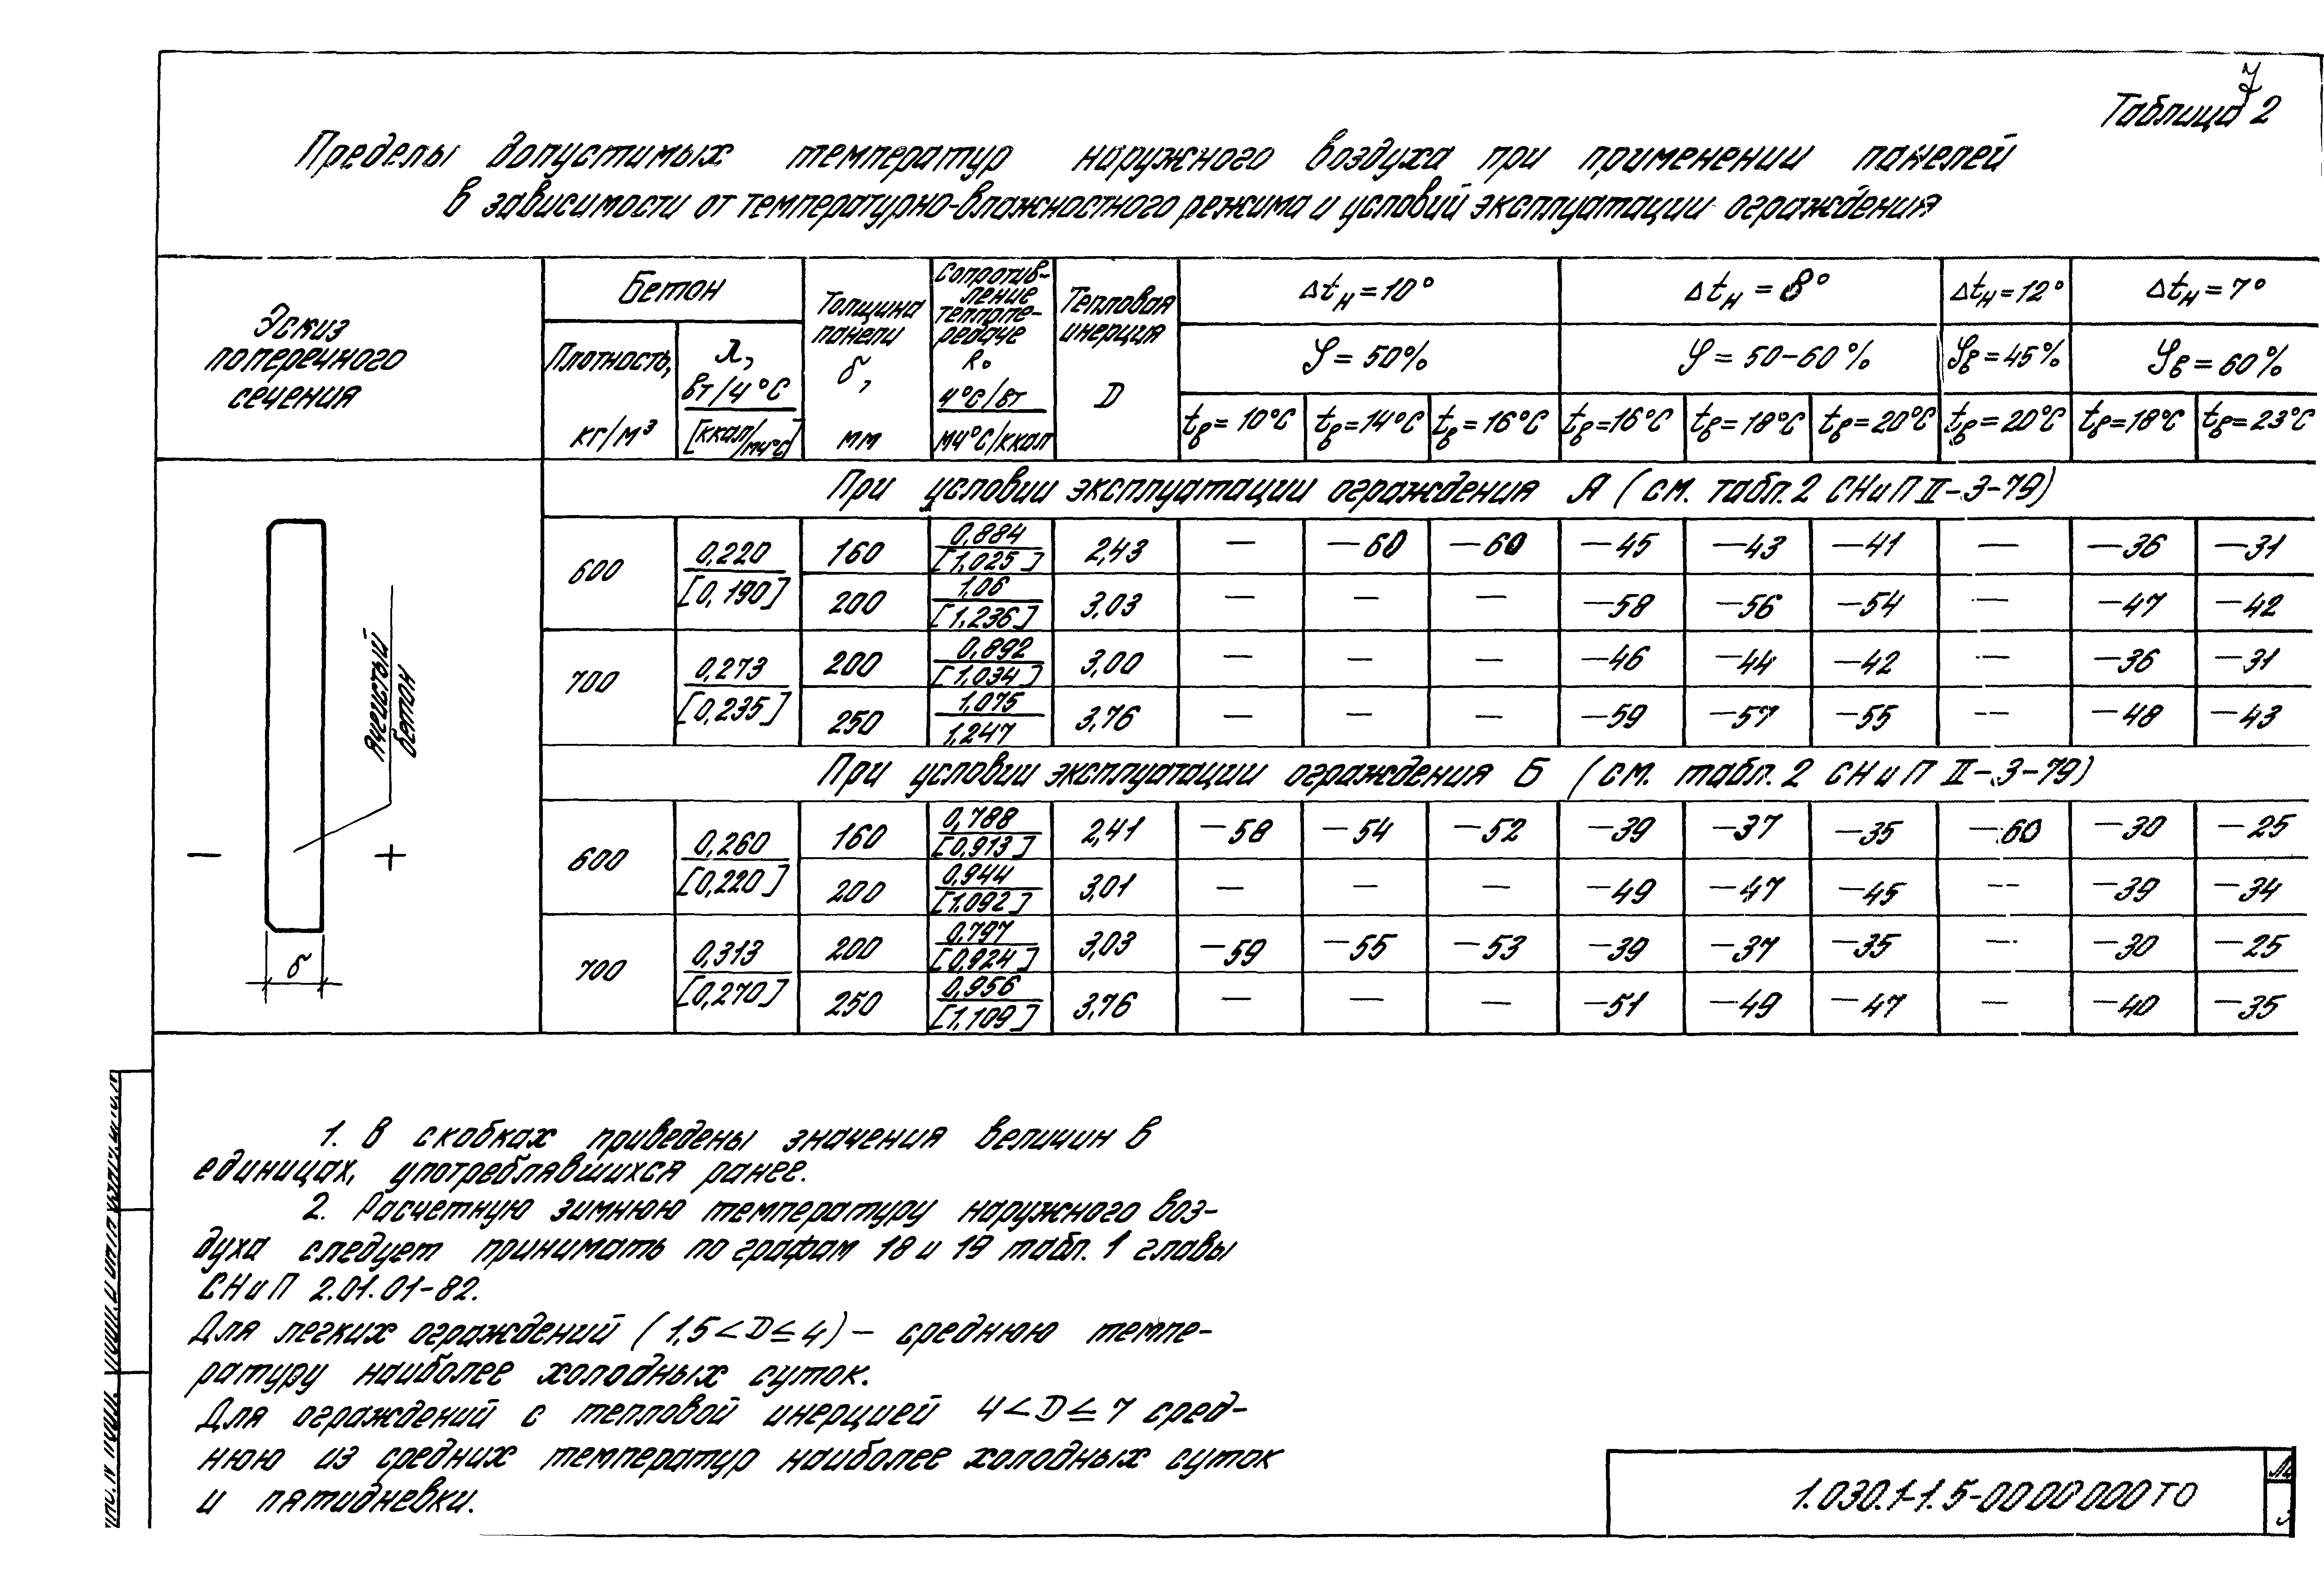 7
Таблица 2
Пределы допустимых температур наружного воздуха при применении панелей
в зависимости от температурно-влажностного режима и условий эксплуатации ограждения
Эскиз поперечного сечения
Бетон
Плотность, кг/м³
λ, Вт/ч°С / [ккал/мч°С]
Толщина панели δ, мм
Сопротивление теплопередаче R₀ ч°С/Вт / мч°С/ккал
Тепловая инерция D
Δtн=10° Δtн=8° Δtн=12° Δtн=7°
φ=50% φ=50-60% φв=45% φв=60%
tв=10°С tв=14°С tв=16°С tв=16°С tв=18°С tв=20°С tв=20°С tв=18°С tв=23°С
При условии эксплуатации ограждения А (см. табл.2 СНиП II-3-79)
600 0,220 / [0,190] 160 0,884 / [1,025] 2,43 — —60 —60 —45 —43 —41 — —36 —31
200 1,06 / [1,236] 3,03 — — — —58 —56 —54 — —47 —42
700 0,273 / [0,235] 200 0,892 / [1,034] 3,00 — — — —46 —44 —42 — —36 —31
250 1,075 / 1,247 3,76 — — — —59 —57 —55 — —48 —43
При условии эксплуатации ограждения Б (см. табл.2 СНиП II-3-79)
600 0,260 / [0,220] 160 0,788 / [0,913] 2,41 —58 —54 —52 —39 —37 —35 —60 —30 —25
200 0,944 / [1,092] 3,01 — — — —49 —47 —45 — —39 —34
700 0,313 / [0,270] 200 0,797 / [0,924] 3,03 —59 —55 —53 —39 —37 —35 — —30 —25
250 0,956 / [1,109] 3,76 — — — —51 —49 —47 — —40 —35
Ячеистый
бетон
− +
δ
1. В скобках приведены значения величин в
единицах, употреблявшихся ранее.
2. Расчетную зимнюю температуру наружного воз-
духа следует принимать по графам 18 и 19 табл. 1 главы
СНиП 2.01.01-82.
Для легких ограждений (1,5<D≤4) – среднюю темпе-
ратуру наиболее холодных суток.
Для ограждений с тепловой инерцией 4<D≤7 сред-
нюю из средних температур наиболее холодных суток
и пятидневки.
1.030.1-1.5-0000000ТО